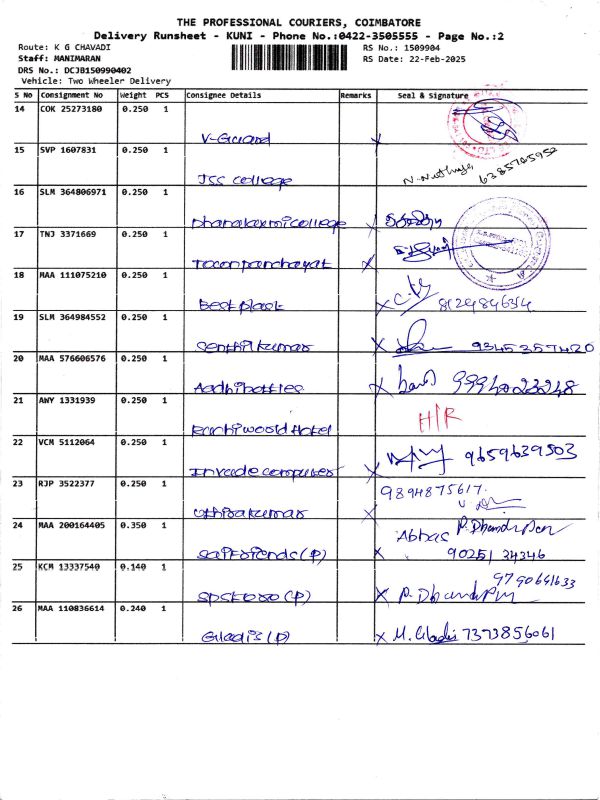 THE PROFESSIONAL COURIERS, COIMBATORE
Delivery Runsheet - KUNI - Phone No.:0422-3505555 - Page No.:2
Route: K G CHAVADI
RS No.: 1509904
Staff: MANIMARAN
RS Date: 22-Feb-2025
DRS No.: DCJB150990402
Vehicle: Two Wheeler Delivery
S No Consignment No Weight PCS Consignee Details Remarks Seal & Signature
14 COK 25273180 0.250 1
V-Guard x
15 SVP 1607831 0.250 1
JSS college 6385705952
16 SLM 364806971 0.250 1
Dhanalaxmi college x
17 TNJ 3371669 0.250 1
Town panchayat x
18 MAA 111075210 0.250 1
Best plast x 8124846314
19 SLM 364984552 0.250 1
Senthil kumar x 9345357420
20 MAA 576606576 0.250 1
Aadhi bottles x 9994023248
21 AWY 1331939 0.250 1
H/R
Ranchi wood Hotel
22 VCM 5112064 0.250 1
Invade computer x 9659639503
23 RJP 3522377 0.250 1
9894875617.
uthirakumar x
24 MAA 200164405 0.350 1
Abbas P. Dhandapani
Sai Friends (P) x 90251 34346
25 KCM 13337540 0.140 1
9790641633
SPS Store (P) x P. Dhandapani
26 MAA 110836614 0.240 1
Gladis (P) x M. Gladis 7373856061